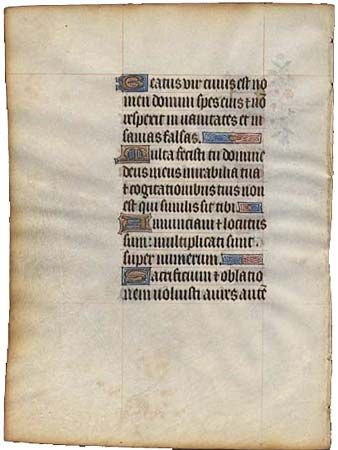 Beatus vir cuius est no
men domini spes eius et nō
respexit in vanitates et in
sanias falsas.
Multa fecisti tu domine
deus meus mirabilia tua
et cogitationibus tuis non
est qui similis sit tibi.
Annunciavi et locutus
sum: multiplicati sunt
super numerum.
Sacrificium et oblatio
nem noluisti aures autē